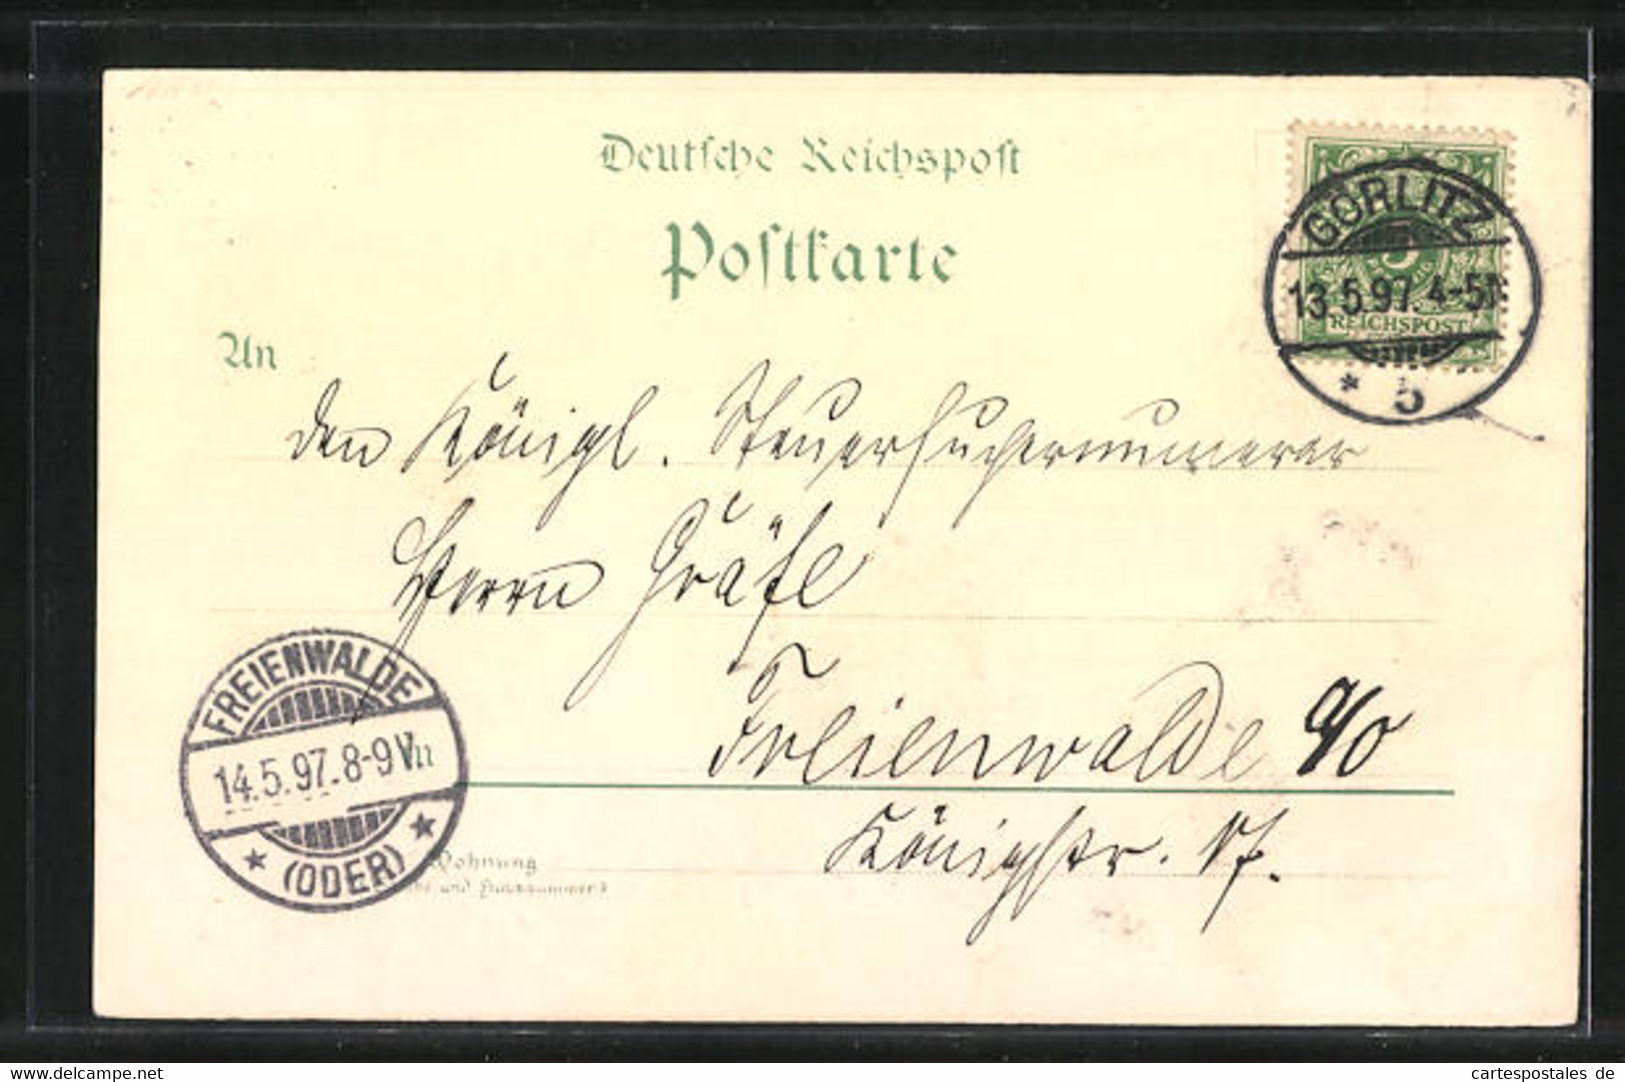 Deutsche Reichspost
Postkarte
An
GÖRLITZ
13.5.97. 4-5N
REICHSPOST
* 5
den Königl. Steuersupernumerar
Herrn Gräfe
Freienwalde a/O
Königstr.
FREIENWALDE
14.5.97. 8-9 V.
(ODER)
Wohnung
und Hausnummer)
www.delcampe.net
cartespostales de